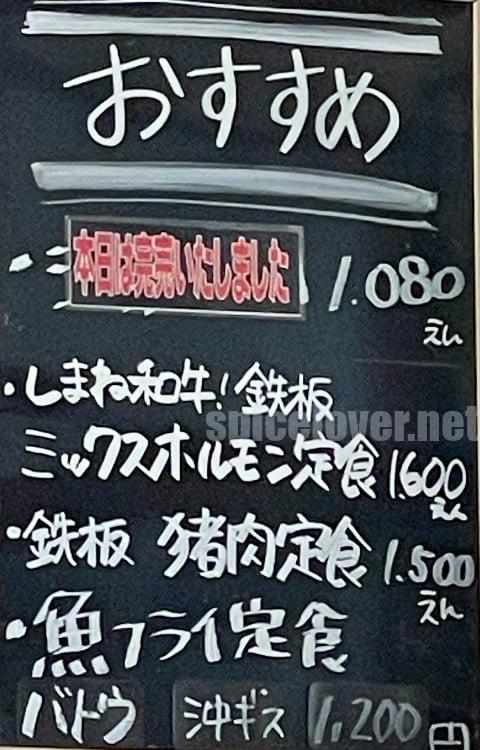 おすすめ
・ 本日は完売いたしました 1.080
えん
・しまね和牛!鉄板
spicelover.net
ミックスホルモン定食 1.600
えん
・鉄板 猪肉定食 1.500
えん
・魚フライ定食
バトウ 沖ギス 1,200円